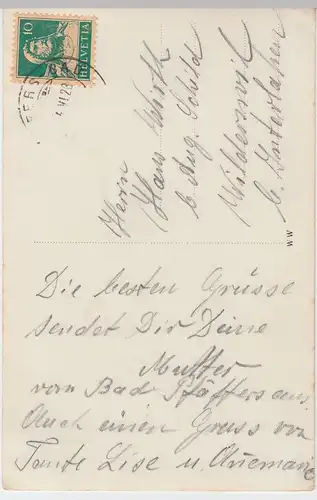 10
HELVETIA
VI 23
Herrn
Hans Wirth
b. Aug. Schild
Wilderswil
b. Interlaken
WW
Die besten Grüsse
sendet Dir Deine
Mutter
vom Bad Pfäffers aus.
Auch einen Gruss von
Tante Lise u.